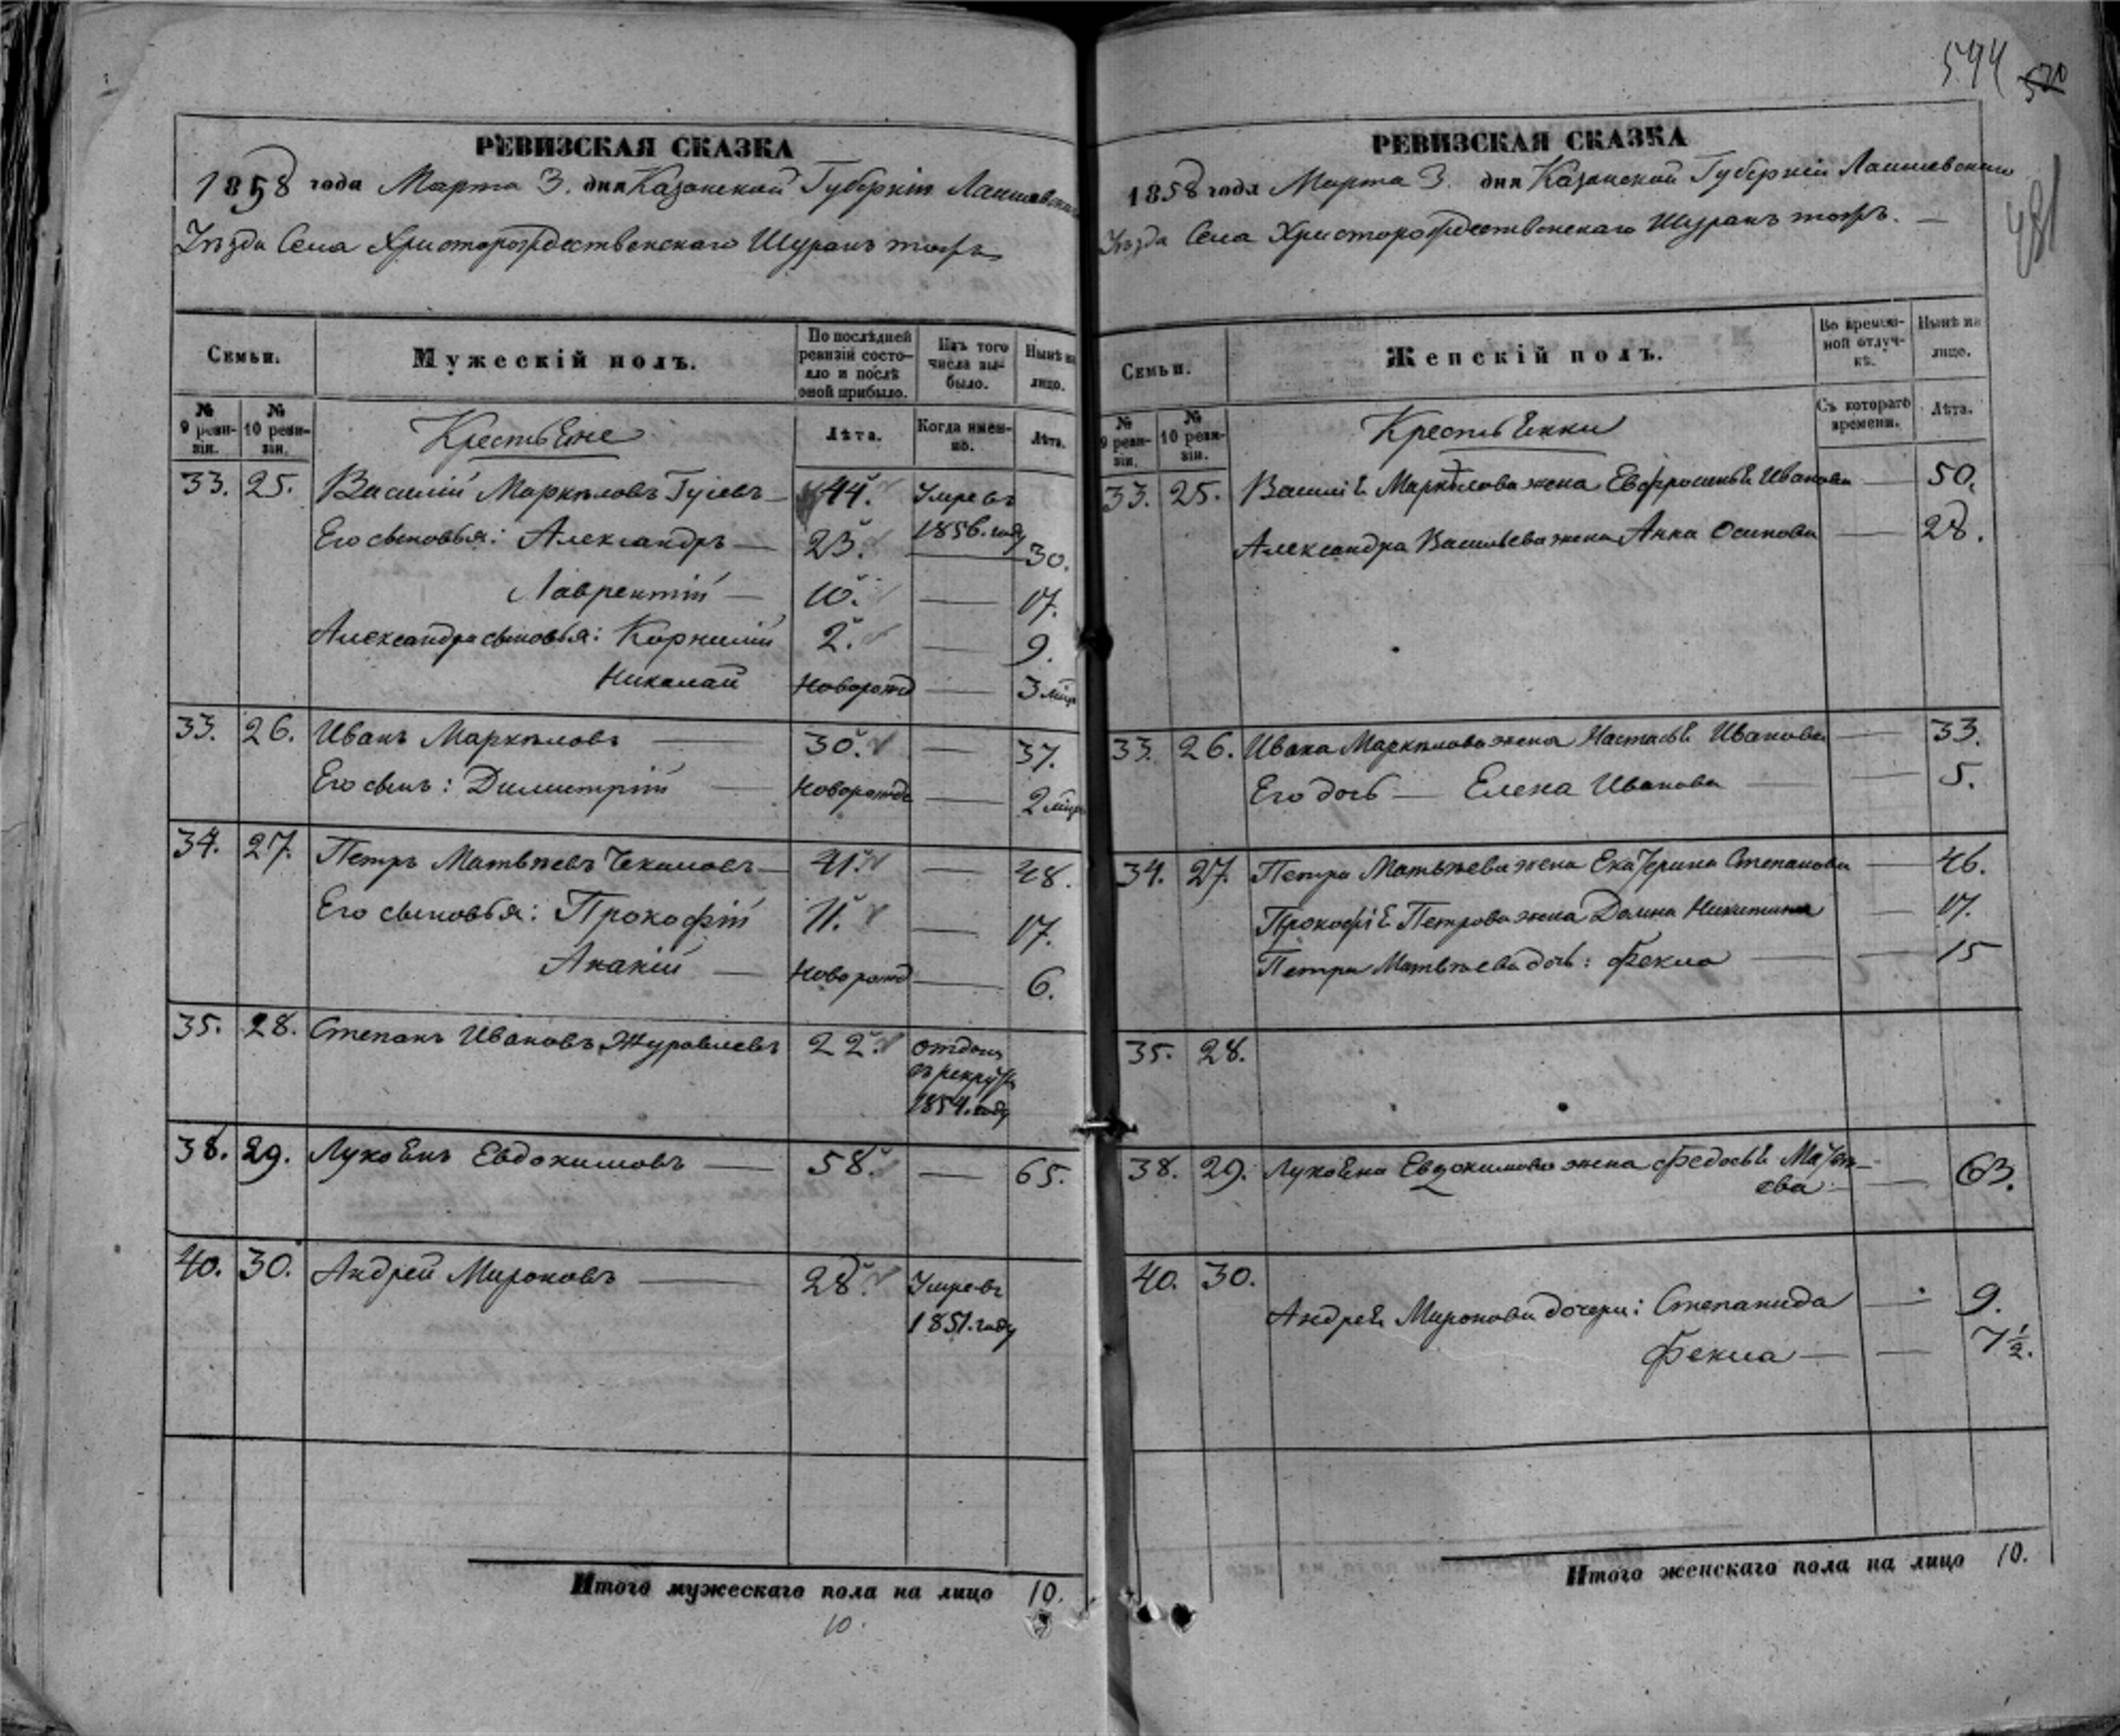 РЕВИЗСКАЯ СКАЗКА
1858 года Марта 3. дня Казанской Губерніи Лаишевскаго
Уѣзда Села Христорождественскаго Шуранъ тожъ
Семьи.
Мужескій полъ.
По послѣдней ревизіи состояло и послѣ оной прибыло.
Изъ того числа выбыло.
Нынѣ на лицо.
№ 9 ревизіи.
№ 10 ревизіи.
Крестьяне
Лѣта.
Когда именно.
Лѣта.
33. 25. Василій Маркѣловъ Гусевъ — 44. Умре въ 1856. году
Его сыновья: Александръ — 23. — 30.
Лаврентій — 10. — 17.
Александра сыновья: Корнилій 2. — 9.
Николай Новорожд — 3 мѣся
33. 26. Иванъ Маркѣловъ — 30. — 37.
Его сынъ: Димитрій — Новорожде — 2 мѣся
34. 27. Петръ Матвѣевъ Чекаловъ — 41. — 48.
Его сыновья: Прокофій 11. — 17.
Ананій — Новорожд — 6.
35. 28. Степанъ Ивановъ Журавлевъ 22. отданъ въ рекруты 1854. году
38. 29. Лукоянъ Евдокимовъ — 58. — 65.
40. 30. Андрей Мироновъ — 28. Умре въ 1851. году
Итого мужескаго пола на лицо 10.
10.
594 570
РЕВИЗСКАЯ СКАЗКА
1858 года Марта 3. дня Казанской Губерніи Лаишевскаго
Уѣзда Села Христорождественскаго Шуранъ тожъ. —
481
Семьи.
Женскій полъ.
Во временной отлучкѣ.
Нынѣ на лицо.
№ 9 ревизіи.
№ 10 ревизіи.
Крестьянки
Съ котораго времени.
Лѣта.
33. 25. Василія Маркѣлова жена Евфросинья Иванова — 50.
Александра Васильева жена Анна Осипова — 28.
33. 26. Ивана Маркѣлова жена Настасья Иванова — 33.
Его дочь — Елена Иванова — 5.
34. 27. Петра Матвѣева жена Екатерина Степанова — 46.
Прокофія Петрова жена Домна Никитина — 17.
Петра Матвѣева дочь: Фекла — 15
35. 28.
38. 29. Лукояна Евдокимова жена Федосья Матвѣ-
ева — 63.
40. 30.
Андрея Миронова дочери: Степанида — 9.
Фекла — 7 1/2.
Итого женскаго пола на лицо 10.